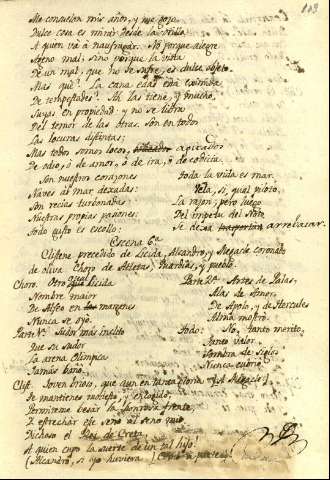 103
Me consuelan mis años, y me gozo.
Dulce cosa es mirar desde la orilla
A quien va à naufragar. No porque alegre
Ageno mal, sino porque la vista
De un mal, que no se sufre, es dulce objeto.
Mas què? La cana edad està esentada
De tempestades? Ah las tiene, y mucho,
Suyas en propiedad: y no se libra
Del temor de las otras. Son en todos
Las locuras distintas;
Mas todos somos locos, agitados
De odio, ò de amor, ò de ira, ò de codicia.
Son nuestros corazones
Naves al mar dexadas:
Son recias turbonadas
Nuestras propias pasiones:
Todo gusto es escollo:
Toda la vida es mar.
Vela, sì, qual piloto,
La razon; pero luego
Del impetu del Noto
Se dexa arrebatar.
Escena 6ª
Clistene precedido de Licida, Alcandro, y Megacle coronado
de oliva. Choro de Atletas, Guardias, y pueblo.
Choro. Otro igual Licida
Nombre maior
De Alfeo en las margenes
Nunca se oyò.
Parte 1ª. Sudor mas inclito
Que su sudor
La arena Olimpica
Jamàs bañò.
Parte 2ª. Artes de Palas,
Alas de Amor,
De Apolo, y de Hercules
Alma mostrò.
Todo: No, tanto merito,
Tanto valor
Sombra de siglos
Nunca cubriò.
Clist. Joven brioso, que aun en tanta gloria (A Megacle)
Te mantienes modesto, y encogido,
Permiteme besar la honrosa frente,
Y estrechar este seno al seno mio.
Dichoso el Rey de Creta,
A quien cupo la suerte de un tal hijo!
(Alcandro, si yo huviera